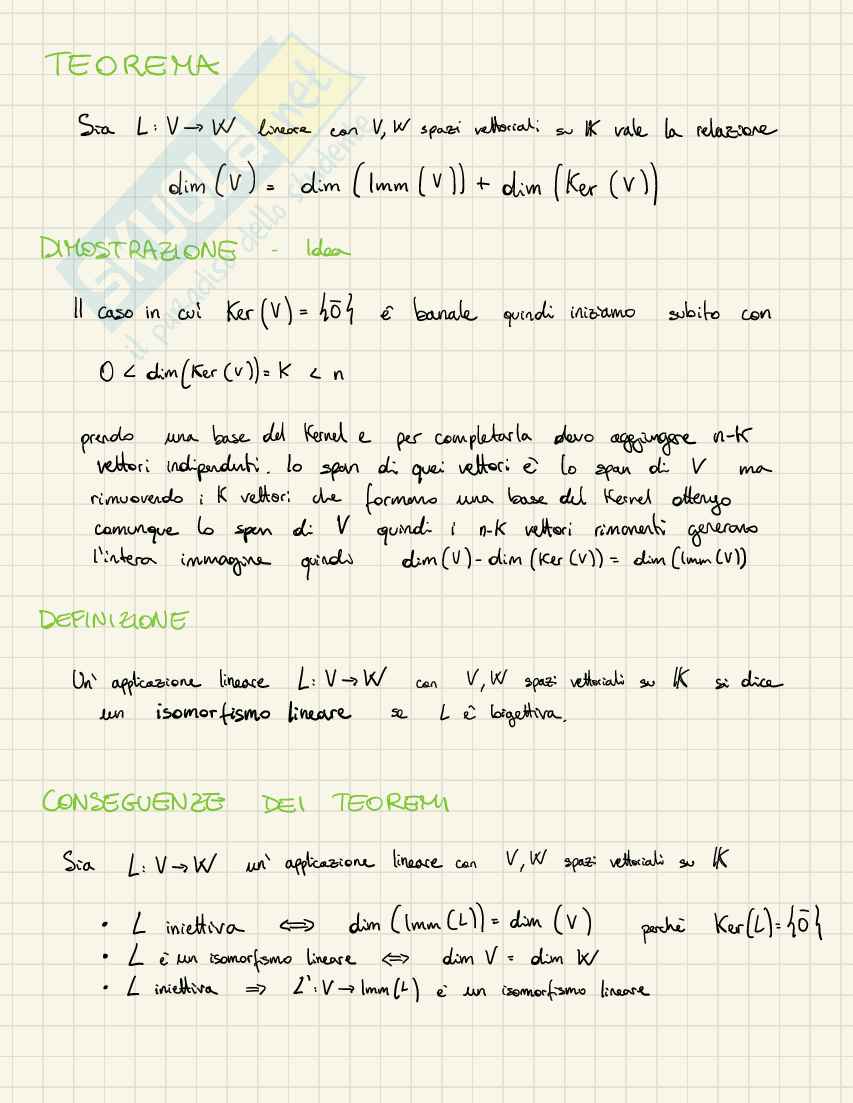 TEOREMA
Sia L: V → W lineare con V, W spazi vettoriali su 𝕂 vale la relazione
dim (V) = dim (Imm (V)) + dim (Ker (V))
DIMOSTRAZIONE - Idea
Il caso in cui Ker (V) = {0̄} è banale quindi iniziamo subito con
0 < dim (Ker (V)) = K < n
prendo una base del Kernel e per completarla devo aggiungere n-K
vettori indipendenti. lo span di quei vettori è lo span di V ma
rimuovendo i K vettori che formano una base del Kernel ottengo
comunque lo span di V quindi i n-K vettori rimanenti generano
l'intera immagine quindi dim (V) - dim (Ker (V)) = dim (Imm (V))
DEFINIZIONE
Un' applicazione lineare L: V → W con V, W spazi vettoriali su 𝕂 si dice
un isomorfismo lineare se L è bigettiva.
CONSEGUENZE DEI TEOREMI
Sia L: V → W un' applicazione lineare con V, W spazi vettoriali su 𝕂
• L iniettiva ⇔ dim (Imm (L)) = dim (V) perchè Ker (L) = {0̄}
• L è un isomorfismo lineare ⇔ dim V = dim W
• L iniettiva ⇒ L': V → Imm (L) è un isomorfismo lineare
SKUOLA.net
il paradiso dello studente